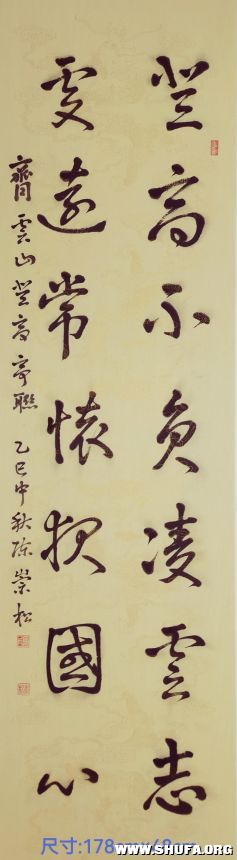 登高不負凌雲志
處遠常懷報國心
齊雲山登高亭聯 乙巳中秋陳崇松
尺寸:178
WWW.SHUFA.ORG